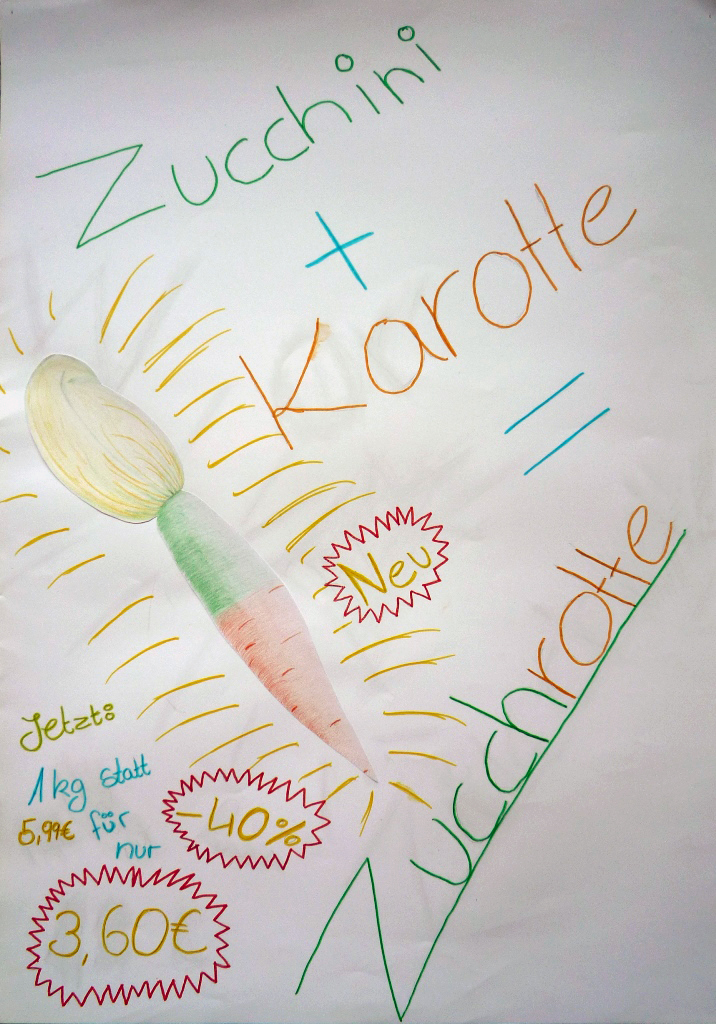 Zucchini
+
Karotte
=
Zucchrotte
Neu
Jetzt:
1kg statt
5,99€ für
nur
-40%
3,60€